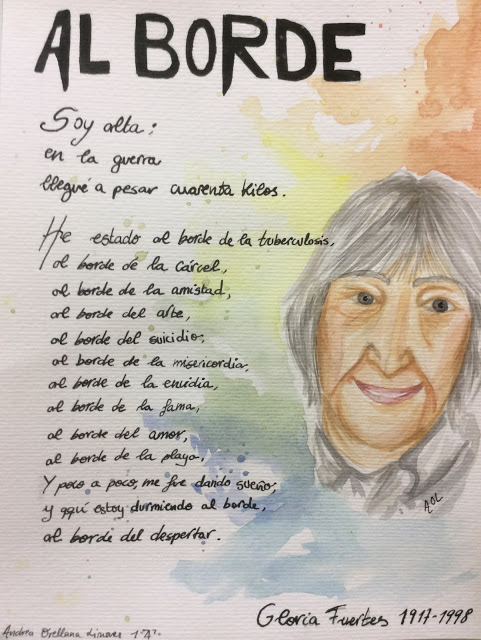 AL BORDE
Soy alta;
en la guerra
llegué a pesar cuarenta kilos.
He estado al borde de la tuberculosis,
al borde de la cárcel,
al borde de la amistad,
al borde del arte,
al borde del suicidio,
al borde de la misericordia,
al borde de la envidia,
al borde de la fama,
al borde del amor,
al borde de la playa,
Y poco a poco, me fue dando sueño,
y aquí estoy durmiendo al borde,
al borde del despertar.
AOL
Gloria Fuertes 1917-1998
Andrea Orellana Linares 1ºA